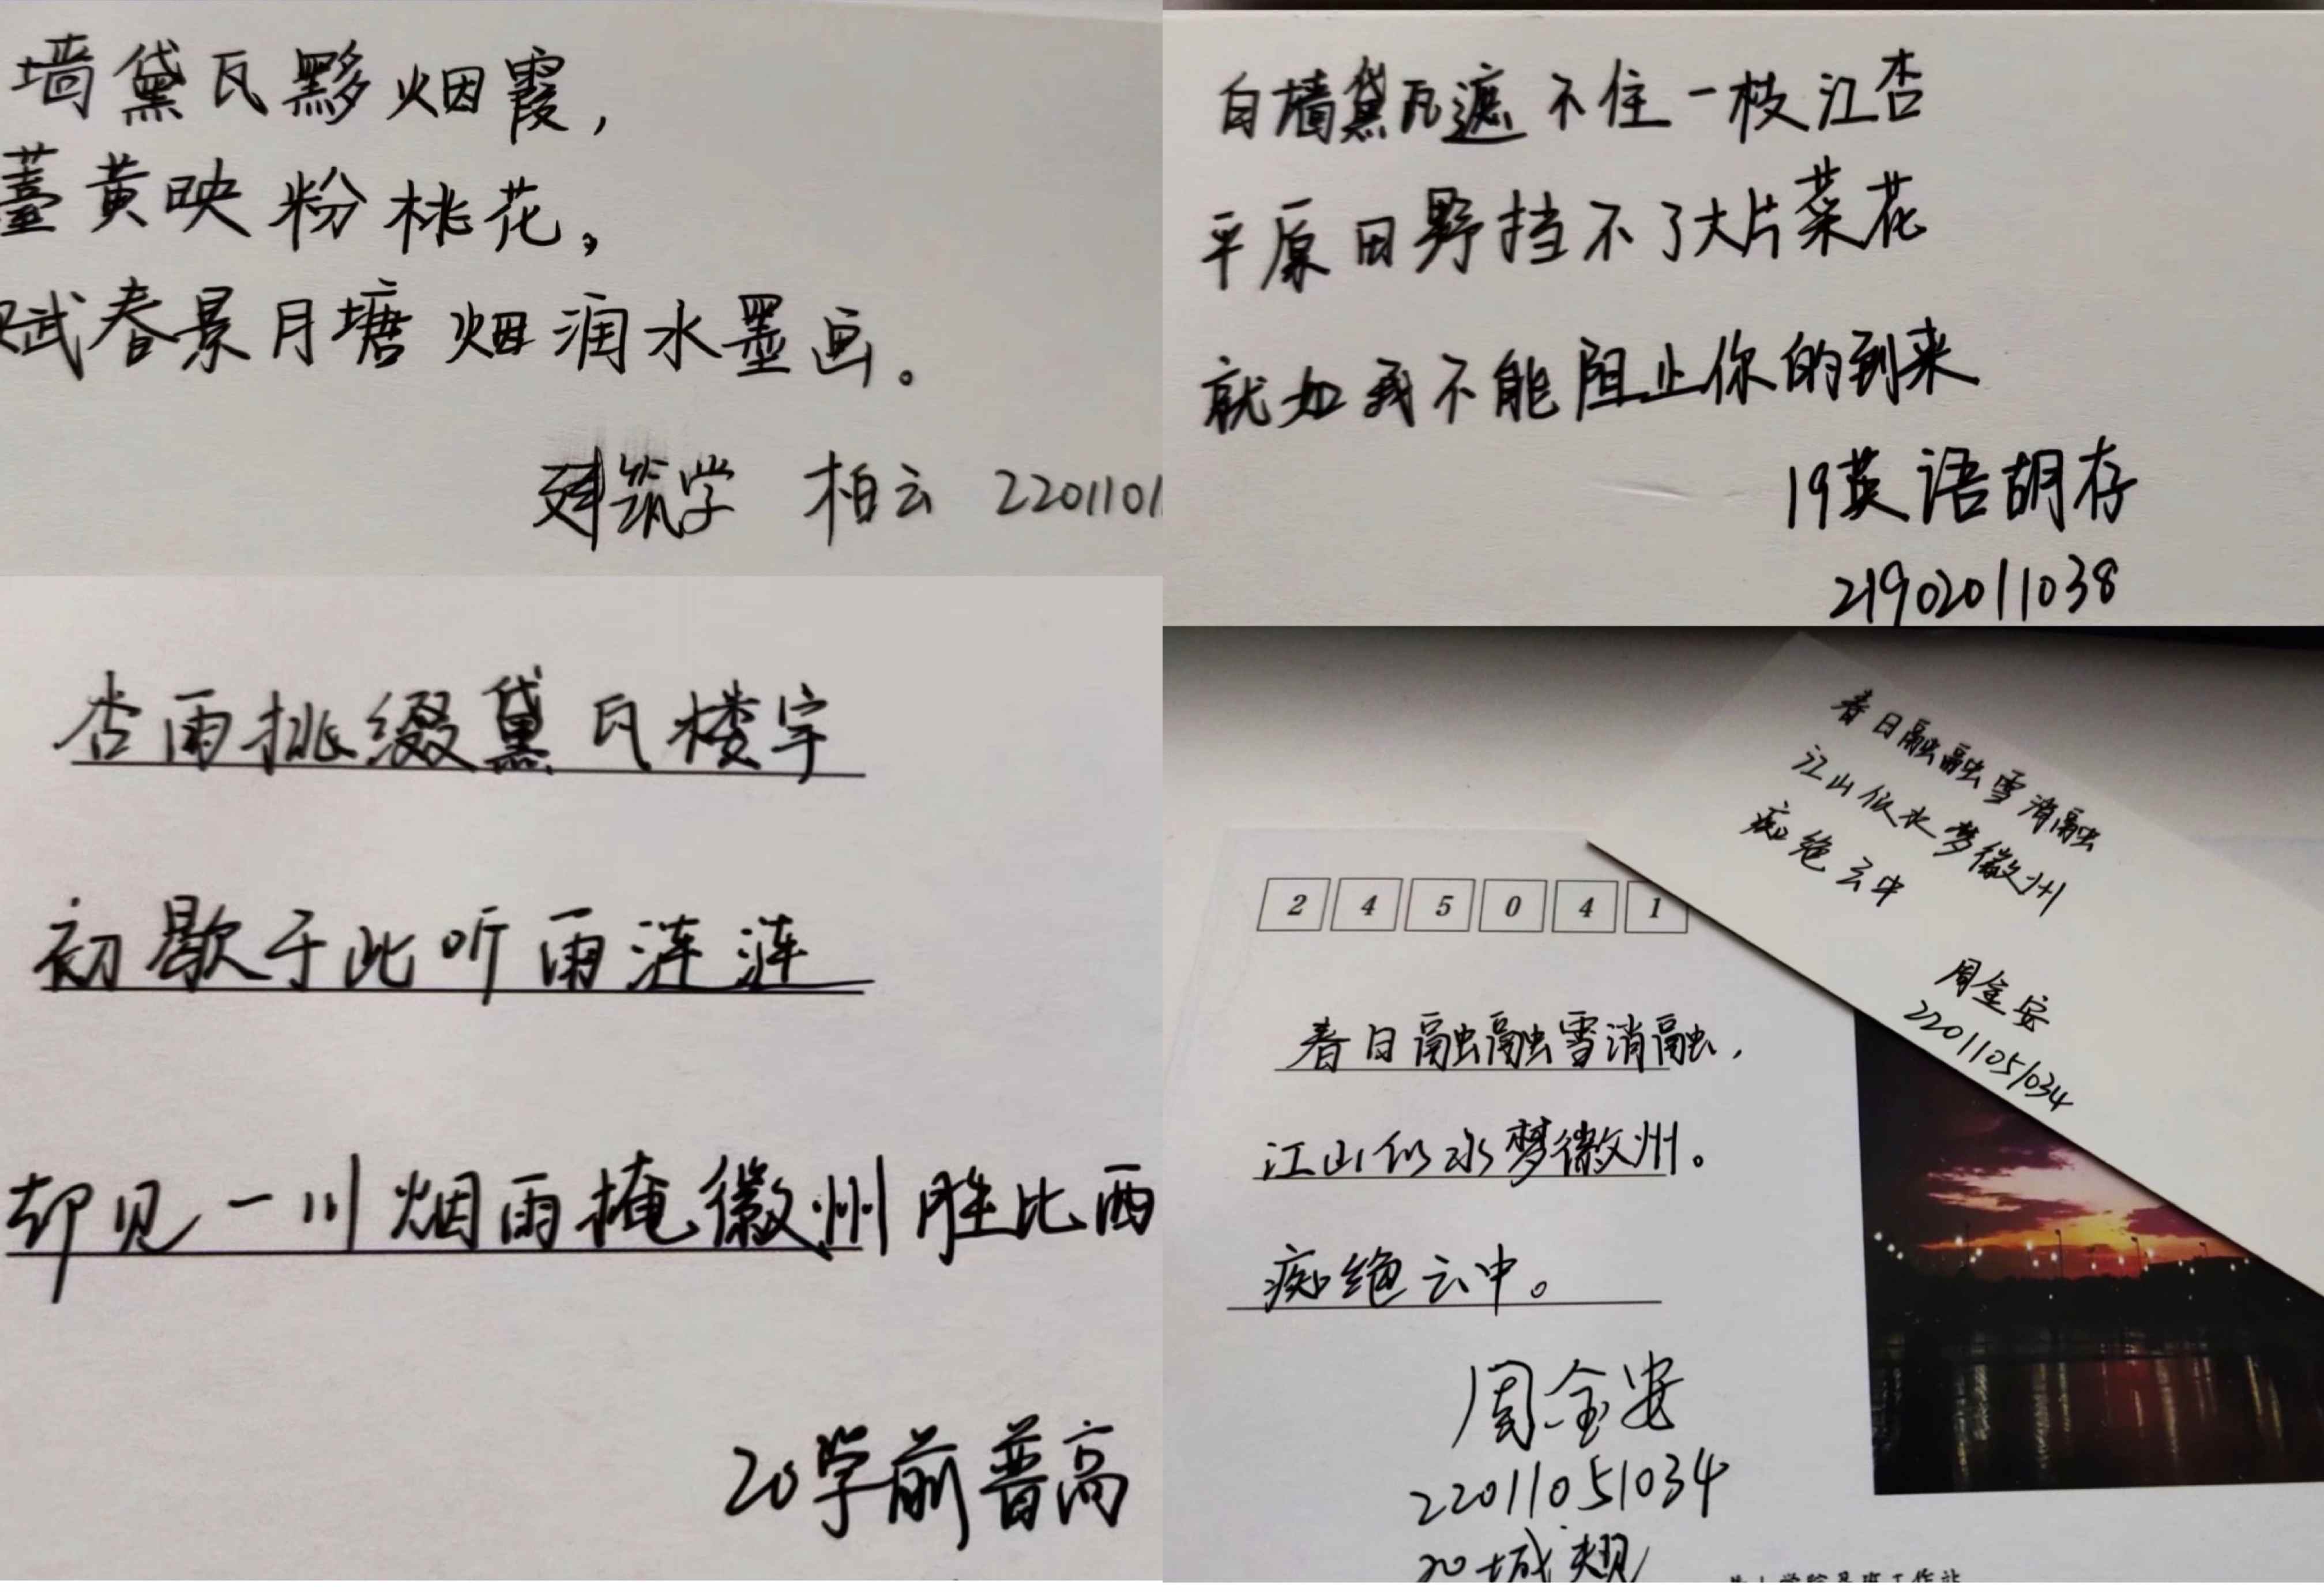 墙黛瓦黟烟霞，
薹黄映粉桃花。
赋春景月塘烟润水墨画。
建筑学 柏云 2201101
白墙黛瓦遮不住一枝江杏
平原田野挡不了大片菜花
就如我不能阻止你的到来
19英语胡存
21902011038
杏雨挑缀黛瓦楼宇
初歇于此听雨涟涟
却见一川烟雨掩徽州胜比西
20学前普高
春日融融雪消融
江山似水梦徽州
痴绝云中
周金安
22011051034
2 4 5 0 4 1
春日融融雪消融，
江山似水梦徽州。
痴绝云中。
周金安
22011051034
20城规